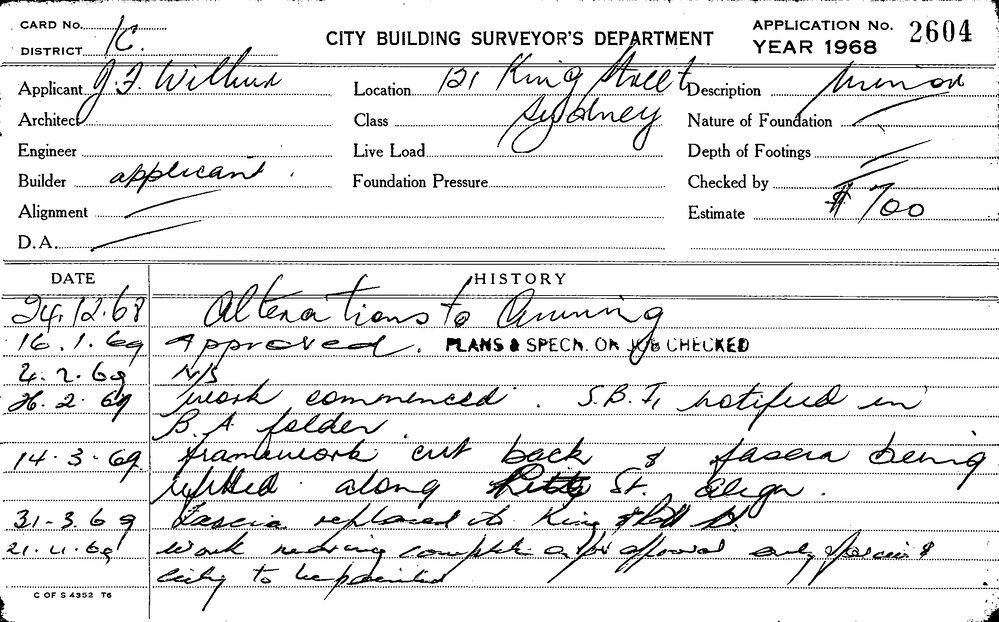 CARD No. 1C.
DISTRICT
CITY BUILDING SURVEYOR'S DEPARTMENT
APPLICATION No. 2604
YEAR 1968
Applicant J.F. Wilkins Location 121 King Street Description minor
Architect Class Sydney Nature of Foundation
Engineer Live Load Depth of Footings
Builder applicant. Foundation Pressure Checked by
Alignment Estimate $700
D.A.
DATE HISTORY
24.12.68 Alterations to Awning
16.1.69 Approved. PLANS & SPECN. ON JOB CHECKED
4.2.69 N/S
26.2.69 work commenced. S.B.I. notified in
B.A. folder
14.3.69 framework cut back & fascia being
refitted along St. align.
31.3.69 Fascia replaced to King St.
21.4.69 Work nearing completion as approved only fascia &
to be painted
C OF S 4352 T6